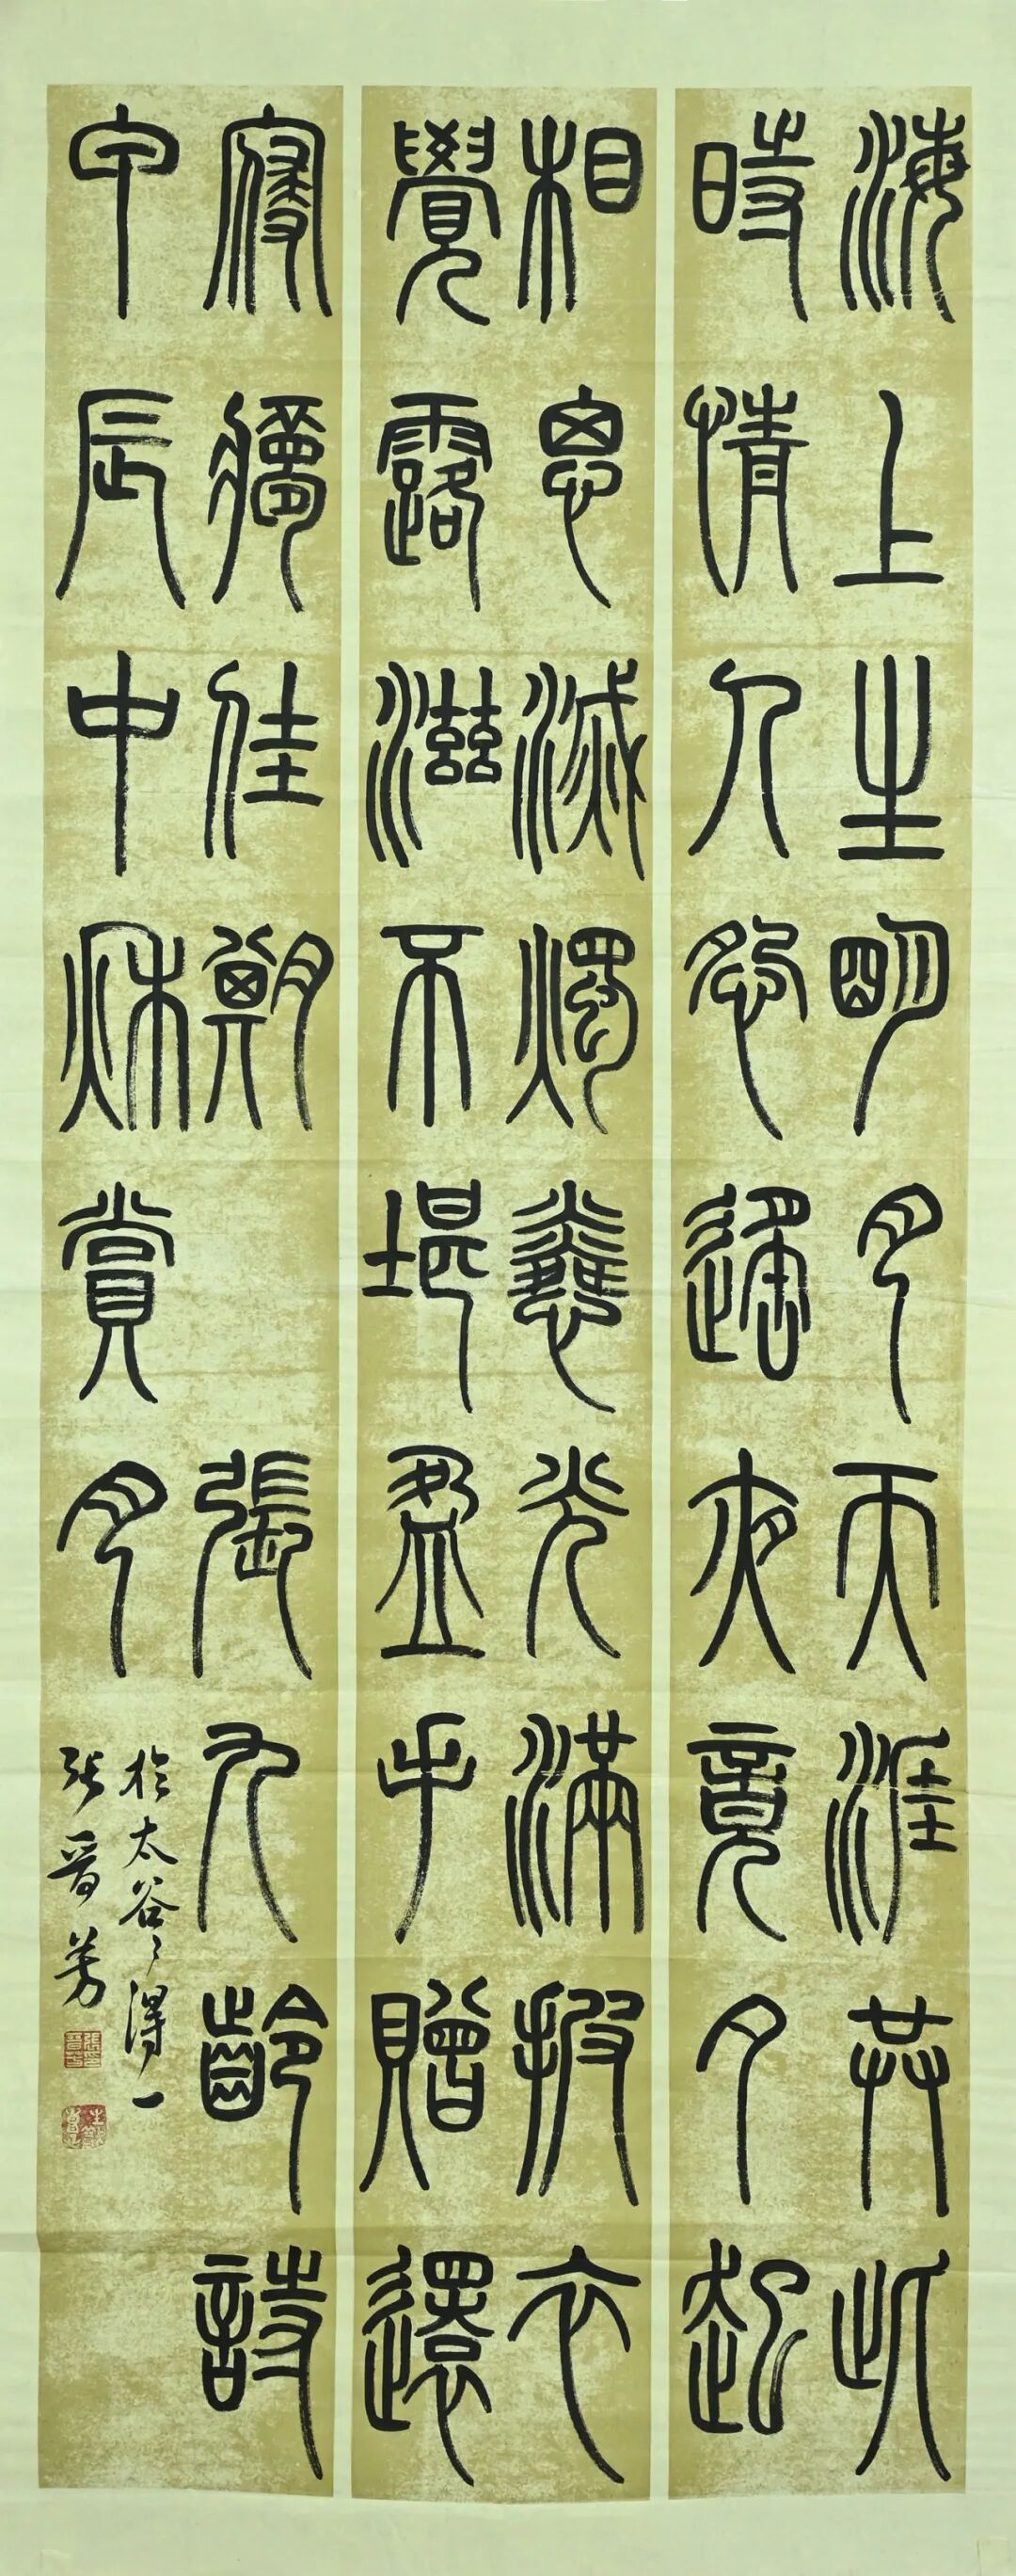 海上生明月天涯共此
時情人怨遙夜竟夕起
相思滅燭憐光滿披衣
覺露滋不堪盈手贈還
寢夢佳期 張九齡詩
甲辰中秋賞月
於太谷之得一
張晉芳